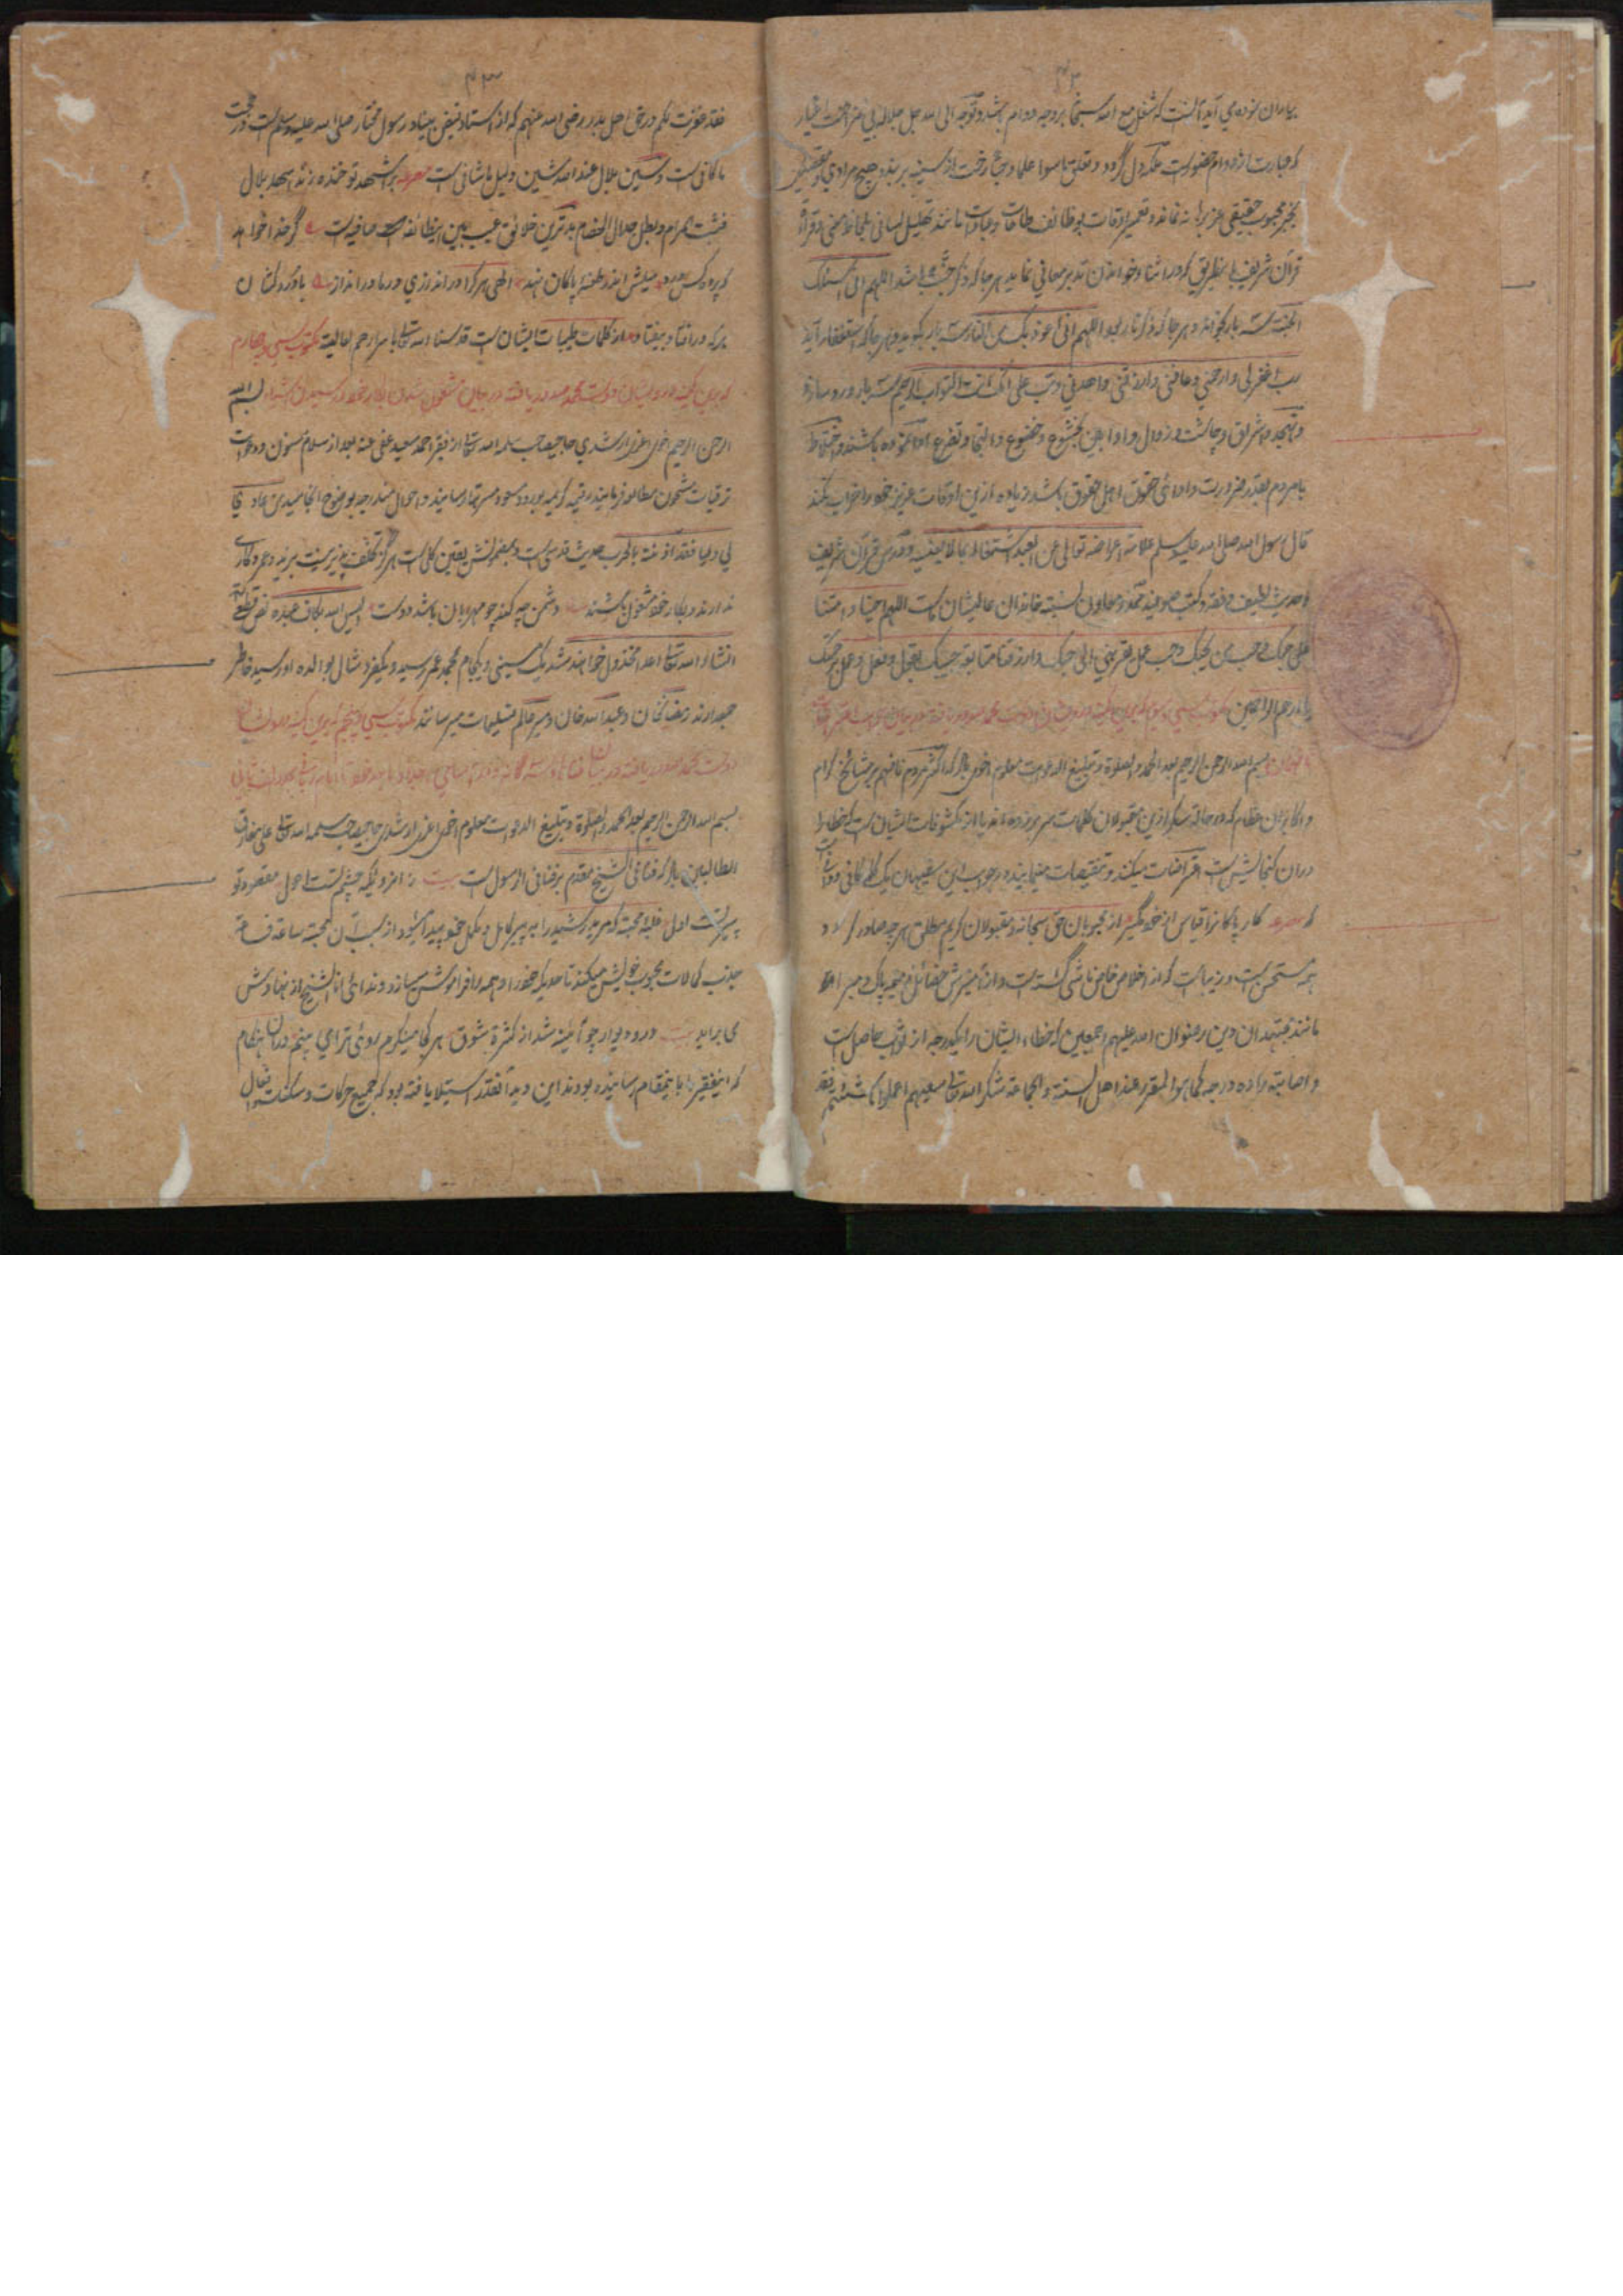 ۴۲
بیاران نموده می آید آنست که شغل مع الله سبحانه بروجه دوام باشد و توجه الی الله جل جلاله بی مزاحمت اغیار
که عبارت از دوام حضورست ملکه دل گردد و تعلق ماسوا علما و حبا رخت از سینه بر بندد هیچ مرادی و مقصودی
بجز محبوب حقیقی عز برهانه نماند و تعمیر اوقات بوظائف طاعات و عبادات مانند تهلیل لسانی بلحاظ معنی و قراة
قرآن شریف باینطریق که در اثناء خواندن تدبر معانی نماید هر جا که ذکر جنت باشد اللهم انی اسئلک
الجنة سه بار بگوید و هر جا که ذکر نار بود اللهم انی اعوذ بک من النار سه بار بگوید و هر جا که استغفار آید
رب اغفرلی وارحمنی وعافنی وارزقنی واهدنی وتب علی انک انت التواب الرحیم سه بار ورد سازد
وتهجد واشراق وچاشت وزوال واوابین بخشوع وخضوع والتجا وتضرع ادا نموده باشند واختلاط
بامردم بقدر ضرورت وادائی حقوق اهل حقوق باشد زیاده ازین اوقات عزیز خود را خراب نکند
قال رسول الله صلی الله علیه وسلم علامة اعراضه تعالی عن العبد اشتغاله بما لا یعنیه ودرس قرآن شریف
وحدیث لطیف وفقه وکتب صوفیه ممد ومعاون نسبته خاندان عالیشان است اللهم احینا وامتنا
علی حبک وحب من یحبک وحب عمل یقربنی الی حبک وارزقنا متابعة حبیبک بقول وفعل وعمل برحمتک
یا ارحم الراحمین مکتوب سی
بسم الله الرحمن الرحیم بعد الحمد والصلوة وتبلیغ الدعوات معلوم اخوی باد که اکثر مردم نافهم بر مشائخ کرام
واکابران عظام که در حالة سکر ازین مقبولان کلمات سر بر زده اند یا از مکشوفات ایشان ست که خطا را
دران گنجایش ست اعتراضات میکنند وتنقیصات مینمایند در جواب این سفیهان یک کلمه کافی ووافیست
که مصرعه کار پاکانرا قیاس از خود مگیر از محبوبان حق سبحانه ومقبولان کریم مطلق هر چه صادر گردد
همه مستحسن ست وزیباست که از اخلاص خاص ناشی گشته است واز آمیزش نفسانی همه پاک ومبرا
مانند مجتهدان دین رضوان الله علیهم اجمعین که خطاء ایشان را یکدرجه از ثواب حاصل است
واصابة را ده درجه کما هو المقرر عند اهل السنة والجماعة شکر الله تعالی سعیهم اعملوا ما شئتم فقد
۴۳
فقد غفرت لکم در حق اهل بدر رضی الله عنهم که از استاد فیض بنیاد رسول مختار صلی الله علیه وسلم ست در حجت
ما کافی ست وسین بلال عند الله شین دلیل ما شافی ست مصرعه بر اشهد تو خنده زند اسهد بلال
فثبت المرام وبطل جدال الخصام بدترین خلائق عیب بین اینطائفه صافیه ست گر خدا خواهد
که پرده کس درد میلش اندر طعنه پاکان نهد الهی هر کرا
هر که در افتاد بیفتاد از کلمات طیبات ایشان ست قدسنا الله تعالی باسرارهم العالیة مکتوب سی وچهارم
بسم الله
الرحمن الرحیم اخوی اعزی ارشدی حاجی صاحب سلمه الله تعالی از فقیر احمد سعید عفی عنه بعد از سلام مسنون ودعوات
ترقیات مشحون مطالعه فرمایند رقیمه کریمه بورود مسعود مسرتها رسانید واحوال مندرجه بوضوح انجامید من عاد
لی ولیا فقد آذنته بالحرب حدیث قدسی ست وبمضمونش یقین کلی ست
ندارند وبکار خود مشغول باشند دشمن چه کند چو مهربان باشد دوست الیس الله بکاف عبده نص قطعی
انشاء الله تعالی اعدا مخذول خواهند شد یک سینی ویکجام محمد عمر رسید ویکفرد شال بوالده او رسید خاطر
جمع دارند رمضان خان وعبدالله خان ومیر عالم تسلیمات میرسانند مکتوب سی وپنجم
بسم الله الرحمن الرحیم بعد الحمد والصلوة وتبلیغ الدعوات معلوم اخوی اعزی ارشدی حاجی صاحب سلمه الله تعالی علی مفارق
الطالبین باد که فنا فی الشیخ مقدم بر فنا فی الرسول ست بیت
پیرتست اول غلبه محبت که مرید رشید را به پیر کامل ومکمل خود پیدا میشود از سبب آن محبة ساعة فساعة
جذب کمالات محبوب خویش میکند تا حدیکه خود را وهمه را فراموش میسازد وندائی انا الشیخ از نهادش
می براید بیت در ودیوار چو آئینه شد از کثرة شوق هر کجا مینگرم روئی ترا می بینم دران هنگام
که اینفقیر را باینمقام رسانیده بودند این دید آنقدر استیلا یافته بود که جمیع حرکات وسکنات